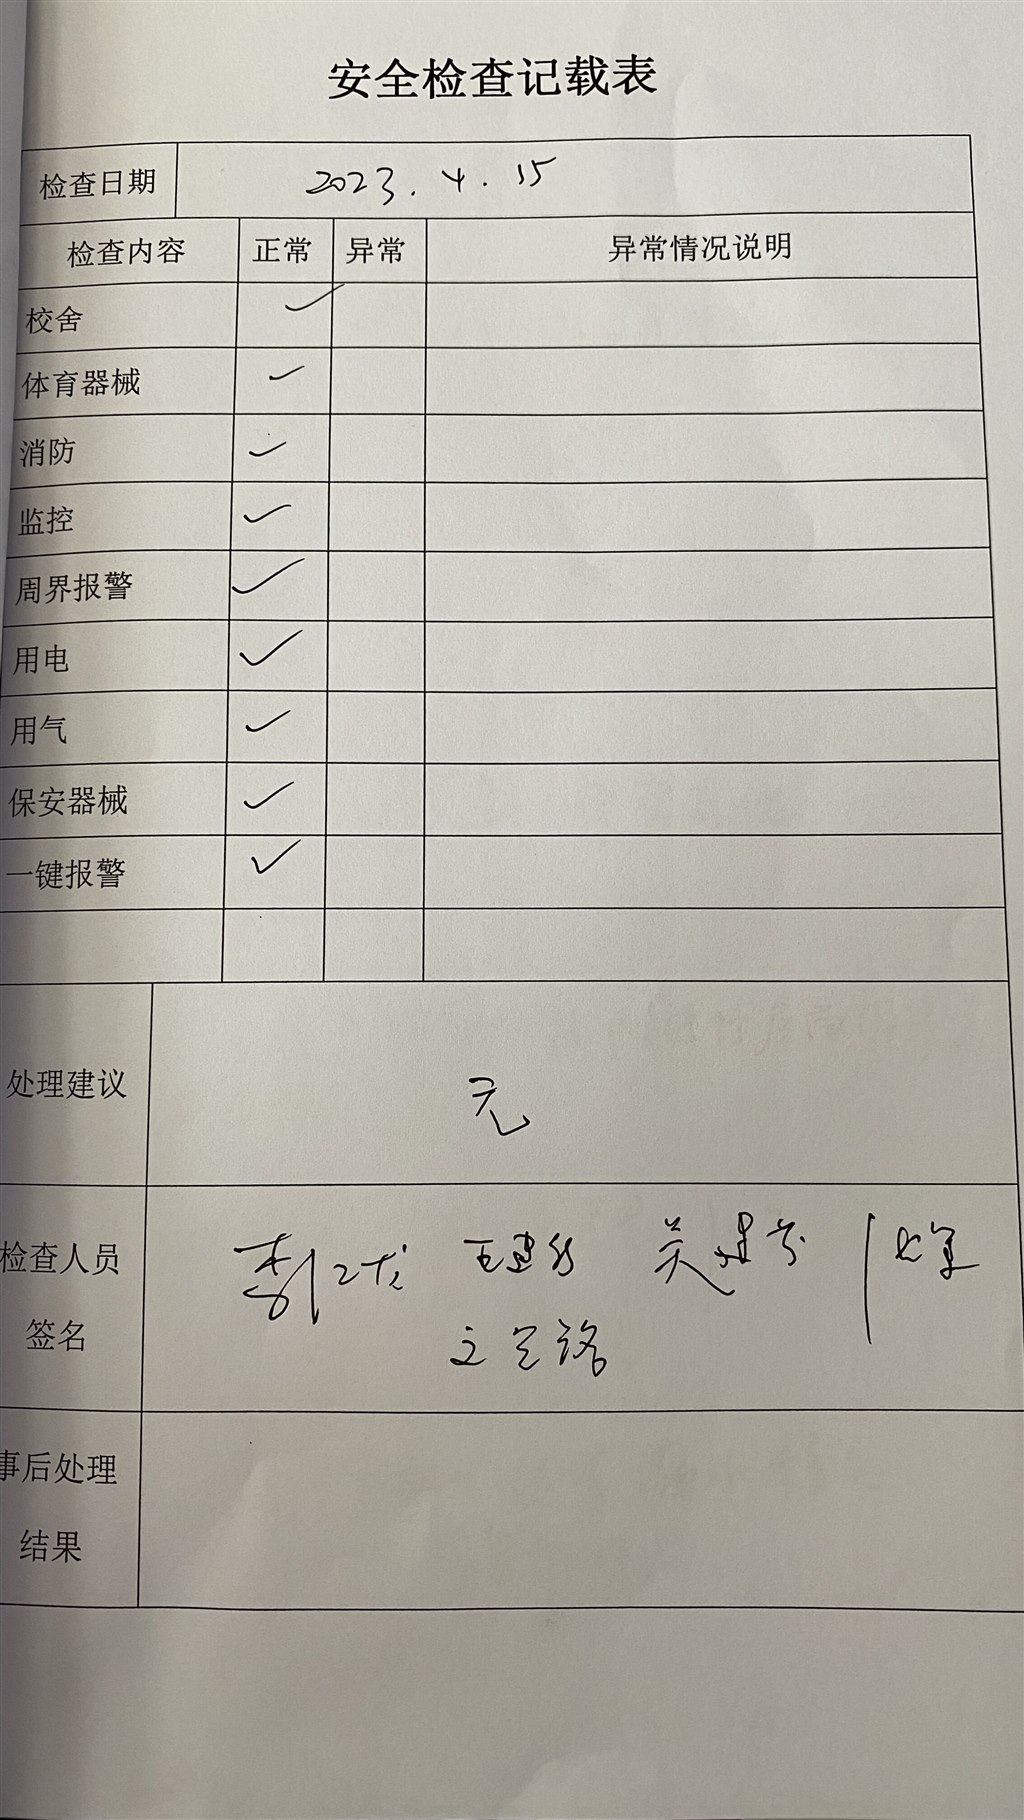 安全检查记载表
检查日期 2023.4.15
检查内容 正常 异常 异常情况说明
校舍 ✓
体育器械 ✓
消防 ✓
监控 ✓
周界报警 ✓
用电 ✓
用气 ✓
保安器械 ✓
一键报警 ✓
处理建议 无
检查人员
签名
事后处理
结果